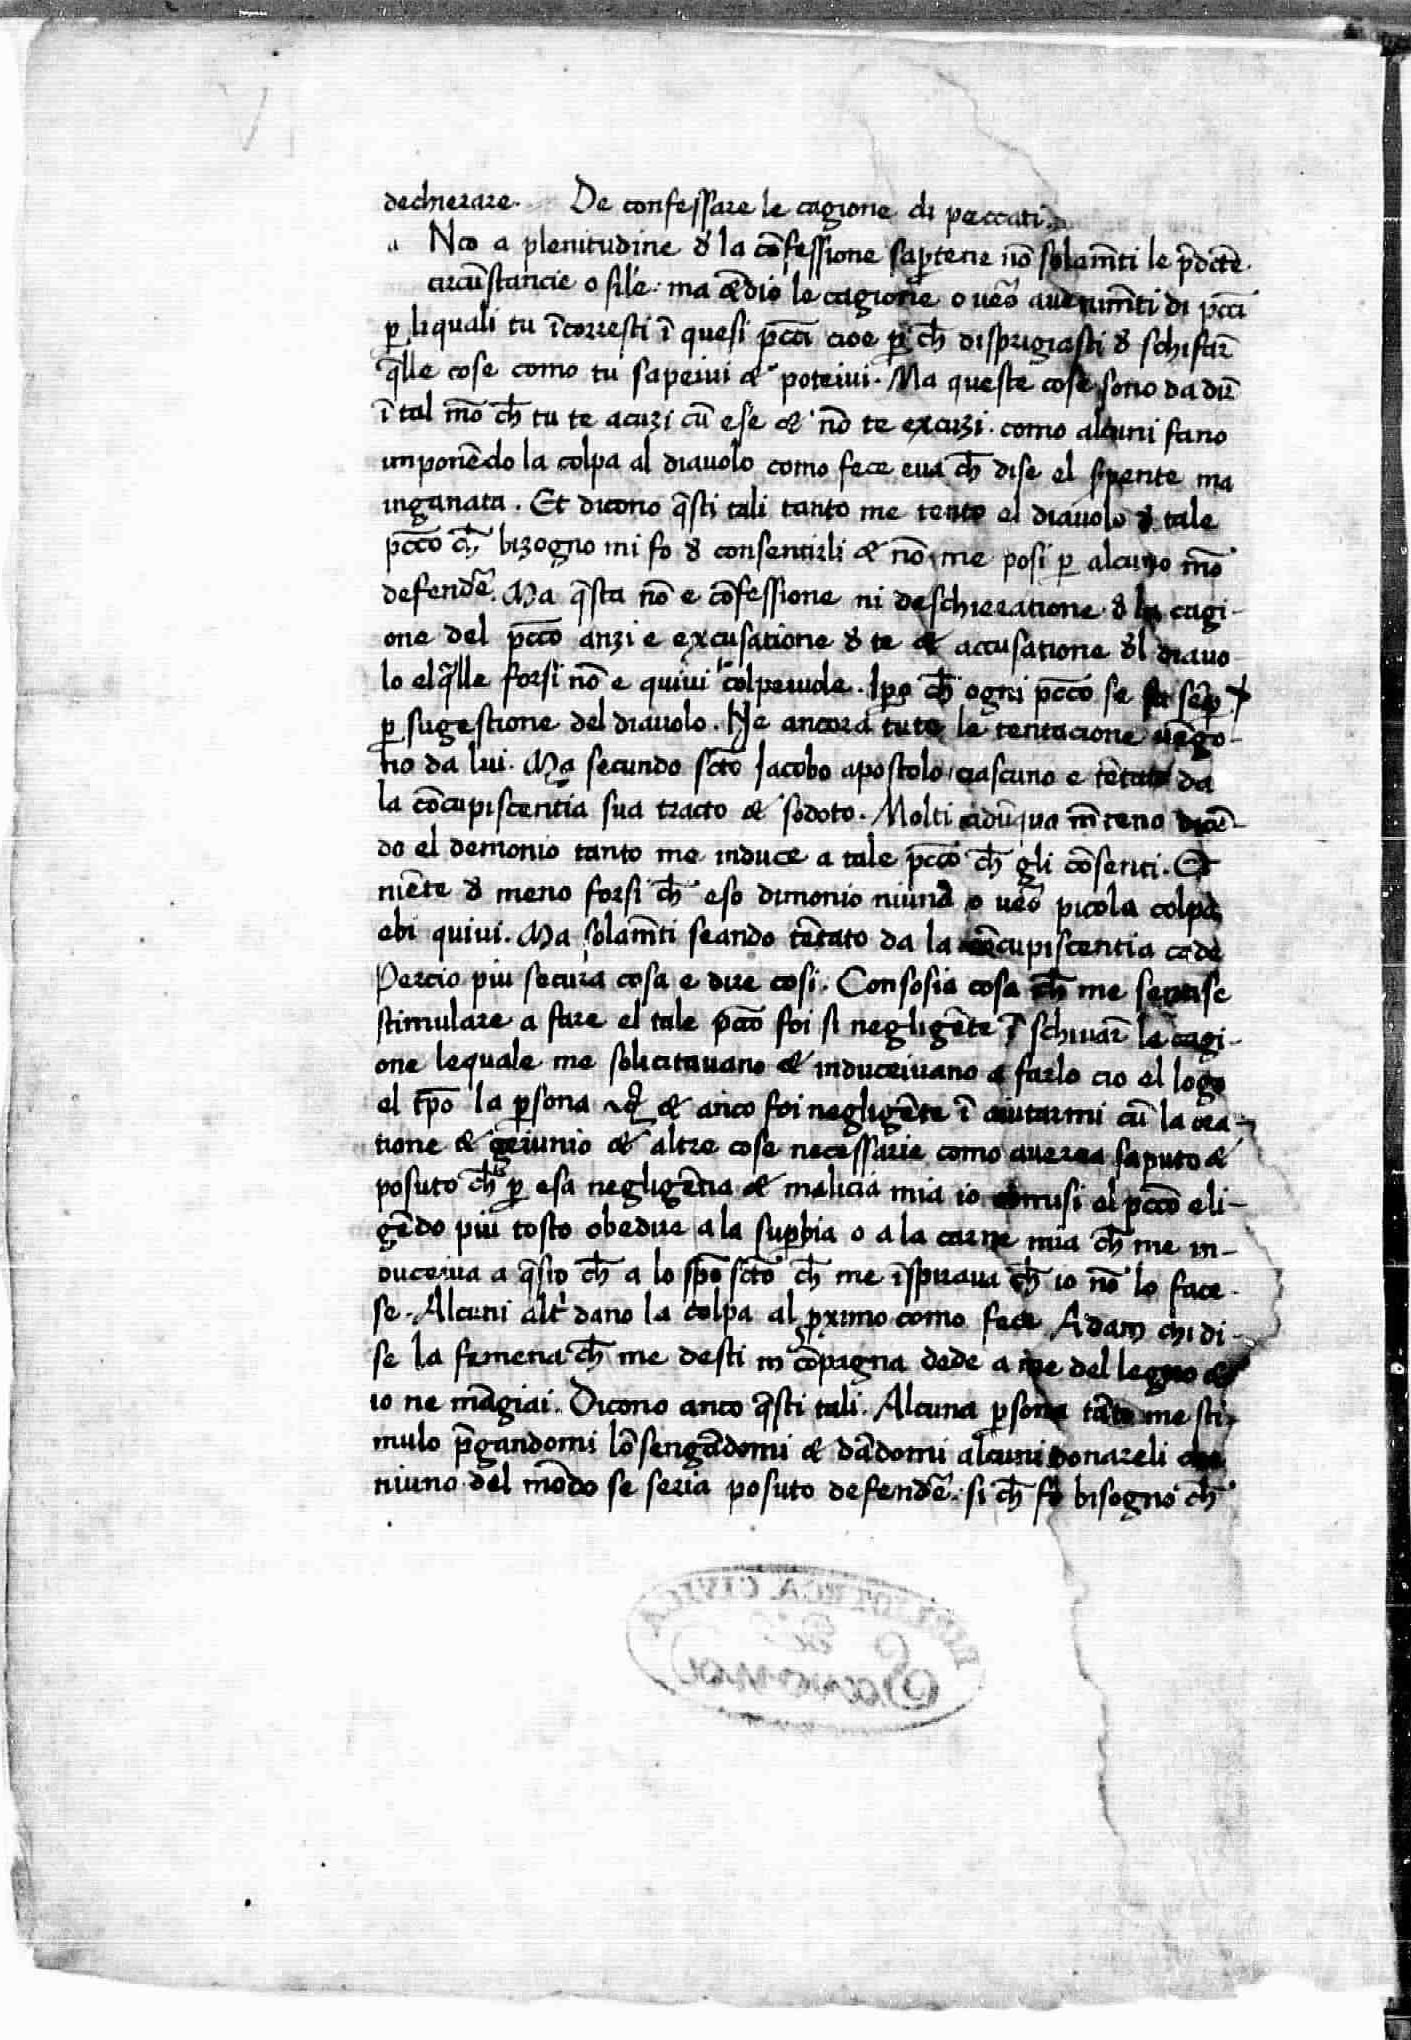 dechierare. De confessare le cagione di peccati.
a Nco a plenitudine đ la cōfessione sap̱tene nō solam̄ti le p̄dcte
circūstancie o sil'e. ma ēdio le cagione o ũo auenim̄ti di pcc̄i
p̱ liquali tu īcorresti ī quesi pcc̄i cioe p̱ ch̄ disprigiasti đ schifar̄
q̄lle cose como tu sapeiui & poteiui. Ma queste cose sono da dir̄
ī tal mō ch̄ tu te acuzi cū ese & nō te excuzi. como alcuni fano
inponēdo la colpa al diauolo como fece eua ch̄ dise el sp̱ente ma
inganata. Et dicono q̄sti tali tanto me tento el diauolo đ tale
pccō ch̄ bizogno mi fo đ consentirli & nō me posi p̱ alcuno mō
defendē. Ma q̄sta nō e cōfessione ni deschieratione đ la cagi-
one del pccō anzi e excusatione đ te & accusatione đl diauo
lo elq̄lle forsi nō e quiui colpeuole. Ip̱o ch̄ ogni pccō se fa sēp̱
p̱ sugestione del diauolo. Ne ancora tute le tentacione uēgo-
no da lui. Ma secundo sctō Jacobo apostolo ciascuno e tētato da
la cōcupiscentia sua tracto & sodoto. Molti adūqua m̄teno dicē-
do el demonio tanto me induce a tale pccō ch̄ gli cōsenti. Et
niēte đ meno forsi ch̄ eso dimonio niuna o ũo picola colpa
ebi quiui. Ma solam̄ti seando tētato da la cōcupiscentia cade
Percio piu secura cosa e dire cosi. Consosia cosa ch̄ me sentise
stimulare a fare el tale pccō foi si negligēte ī schiuar̄ le cagi-
one lequale me solicitauano & induceiuano a farlo cio el logo
el tp̄o la p̱sona & anco foi negligēte ī aiutarmi cū la ora-
tione & geiunio & altre cose necessarie como auerea saputo &
posuto ch̄ p̱ esa negligēcia & malicia mia io comusi el pccō eli-
gēdo piu tosto obedire a la sup̱bia o a la carne mia ch̄ me in-
duceiua a q̄sto ch̄ a lo sp̄o sctō ch̄ me īspiraua ch̄ io nō lo face-
se. Alcuni alt' dano la colpa al p̱ximo como fece Adam chi di-
se la femena ch̄ me desti in cōpagna dede a me del legno &
io ne māgiai. Dicono anco q̄sti tali. Alcuna p̱sona tāto me sti-
mulo p̄gandomi lōsengādomi & dādomi alcuni donareli che
niuno del mōdo se seria posuto defendē. si ch̄ fo bisogno ch̄
BIBLIOTECA CIVICA
di
Savona